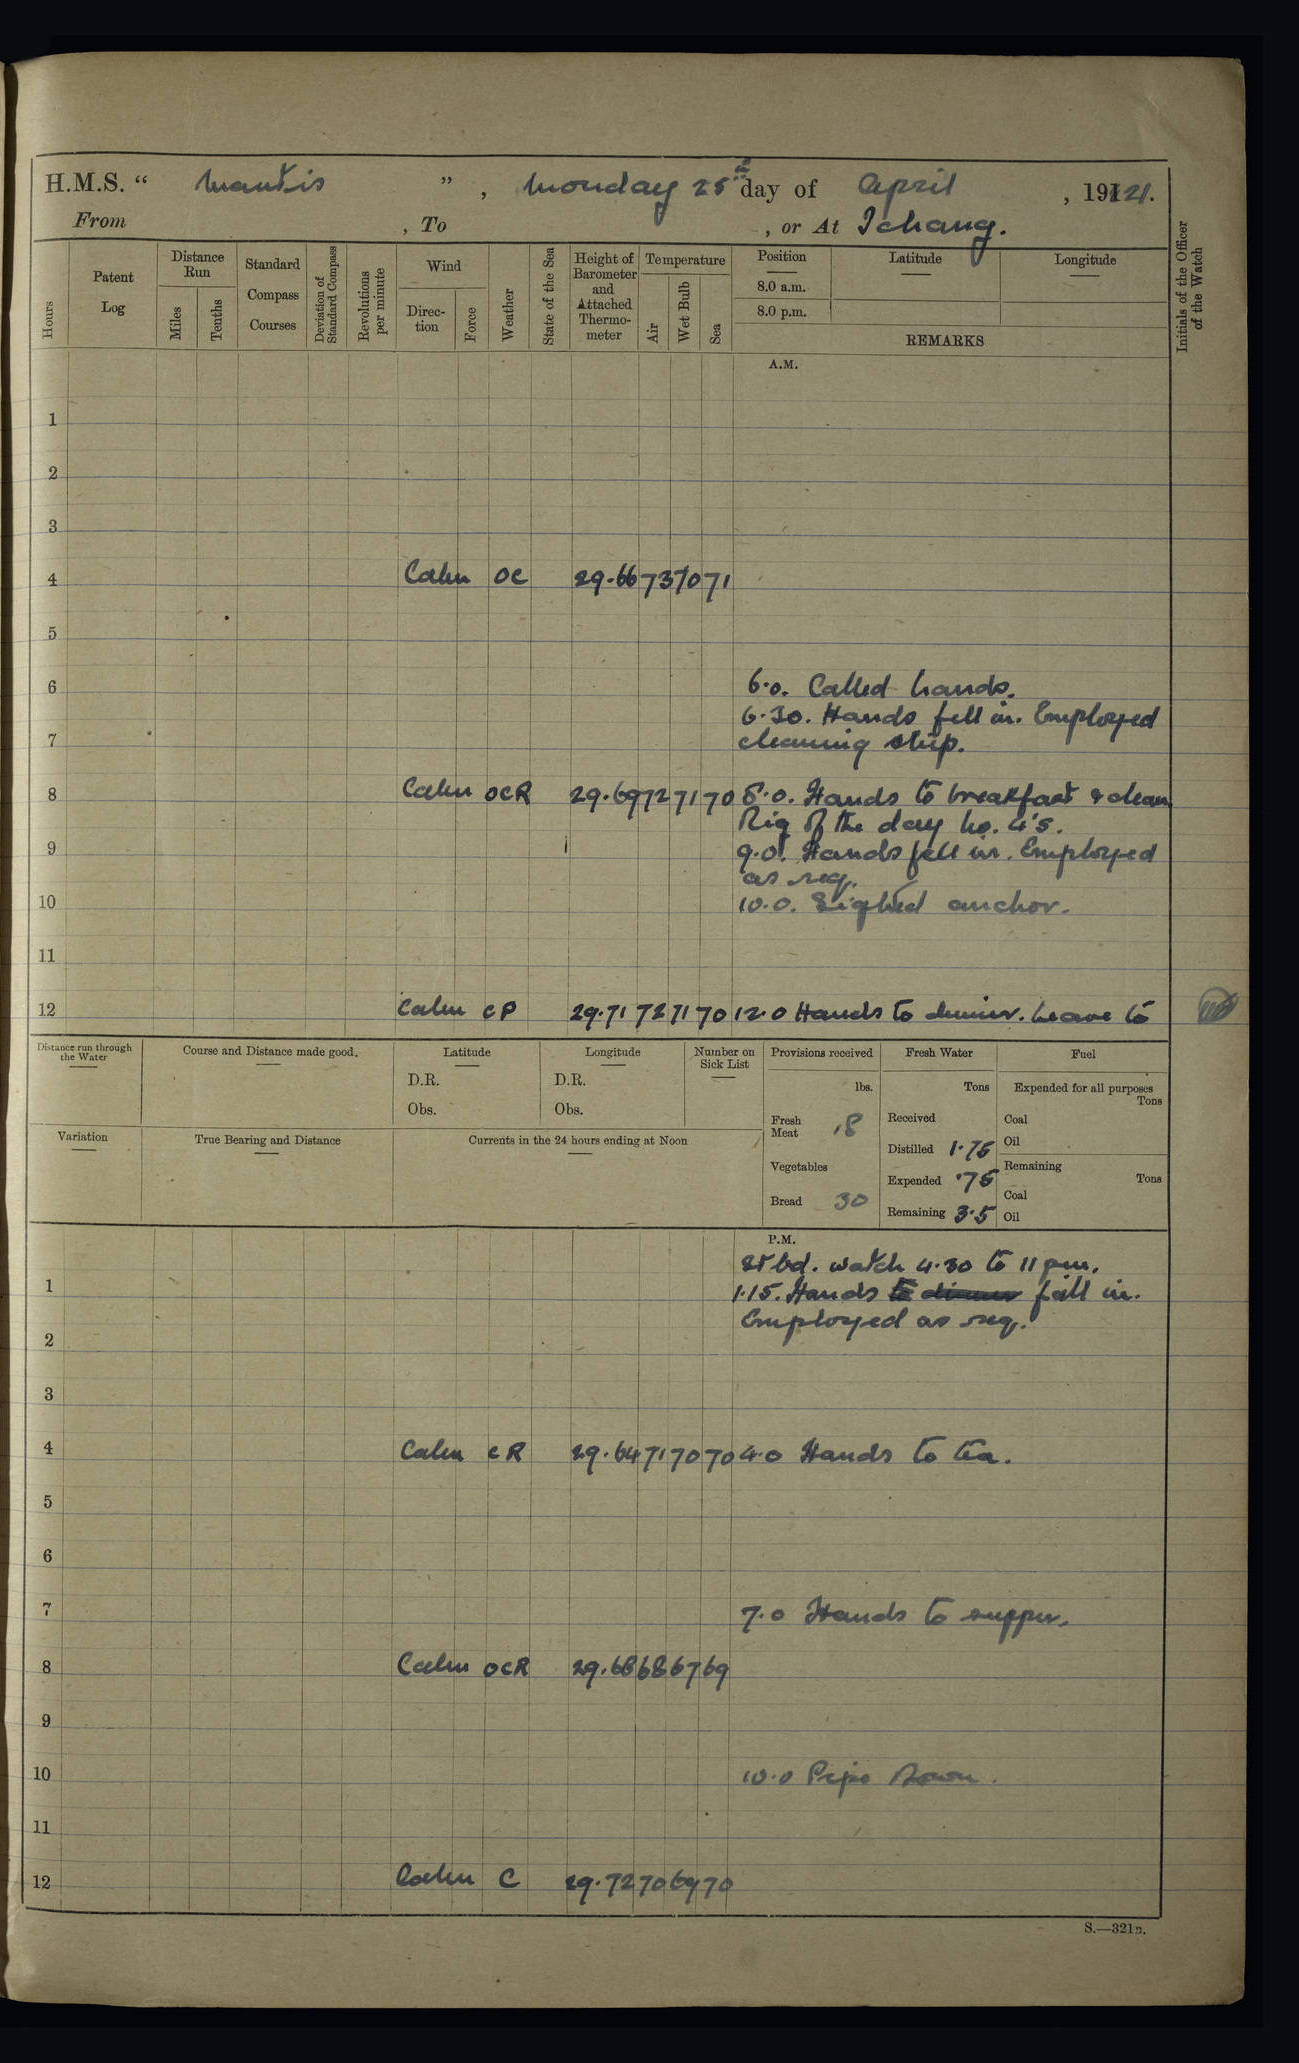 H.M.S. “ Mantis ” , Monday 25th day of April , 1921.
From , To , or At Ichang.
Hours
Patent Log
Distance Run
Miles
Tenths
Standard Compass Courses
Deviation of Standard Compass
Revolutions per minute
Wind
Direction
Force
Weather
State of the Sea
Height of Barometer and Attached Thermometer
Temperature
Air
Wet Bulb
Sea
Position
8.0 a.m.
8.0 p.m.
Latitude
Longitude
REMARKS
Initials of the Officer of the Watch
A.M.
1
2
3
4 Calm oc 29.66 73 70 71
5
6 6.0. Called hands.
6.30. Hands fell in. Employed
7 cleaning ship.
8 Calm ocR 29.69 72 71 70 8.0. Hands to breakfast & clean
Rig of the day No. 4's.
9 9.0. Hands fell in. Employed
as req.
10 10.0. Sighted anchor.
11
12 Calm cP 29.71 72 71 70 12.0 Hands to dinner. Leave to
Distance run through the Water
Course and Distance made good.
Latitude
D.R.
Obs.
Longitude
D.R.
Obs.
Number on Sick List
Provisions received
lbs.
Fresh Meat 18
Vegetables
Bread 30
Fresh Water
Tons
Received
Distilled 1.75
Expended .75
Remaining 3.5
Fuel
Expended for all purposes
Tons
Coal
Oil
Remaining
Tons
Coal
Oil
Variation
True Bearing and Distance
Currents in the 24 hours ending at Noon
P.M.
Stbd. watch 4.30 to 11 pm.
1 1.15. Hands to dinner fall in.
Employed as req.
2
3
4 Calm cR 29.64 71 70 70 4.0 Hands to tea.
5
6
7 7.0 Hands to supper.
8 Calm ocR 29.68 68 67 69
9
10 10.0 Pipe down.
11
12 Calm C 29.72 70 69 70
S.—321B.